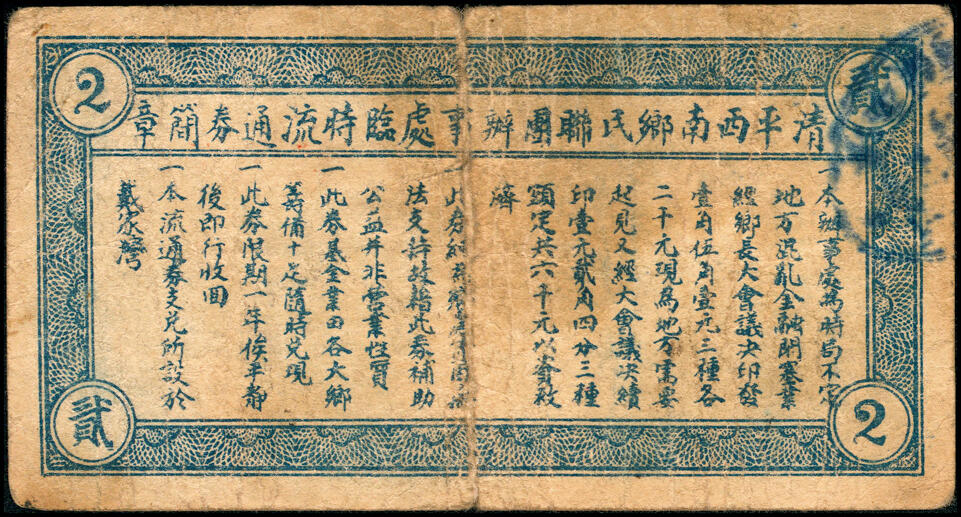 貳
2
清平西南鄉民聯團辦事處臨時流通券簡章
一本辦事處為時局不定
地方混亂金融閉塞業
經鄉長大會議決印發
壹角伍角壹元三種各
二千元現為地方需要
起見又經大會議決續
印壹元貳角四分三種
額定共六千元以資救
濟
一此券純為
法支許救指此券補助
公益并非營業性質
一此券基金業由各大鄉
籌備十足隨時兌現
一此券限期一年俟平靜
後即行收回
一本流通券支兌所設於
戴家灣
貳
2